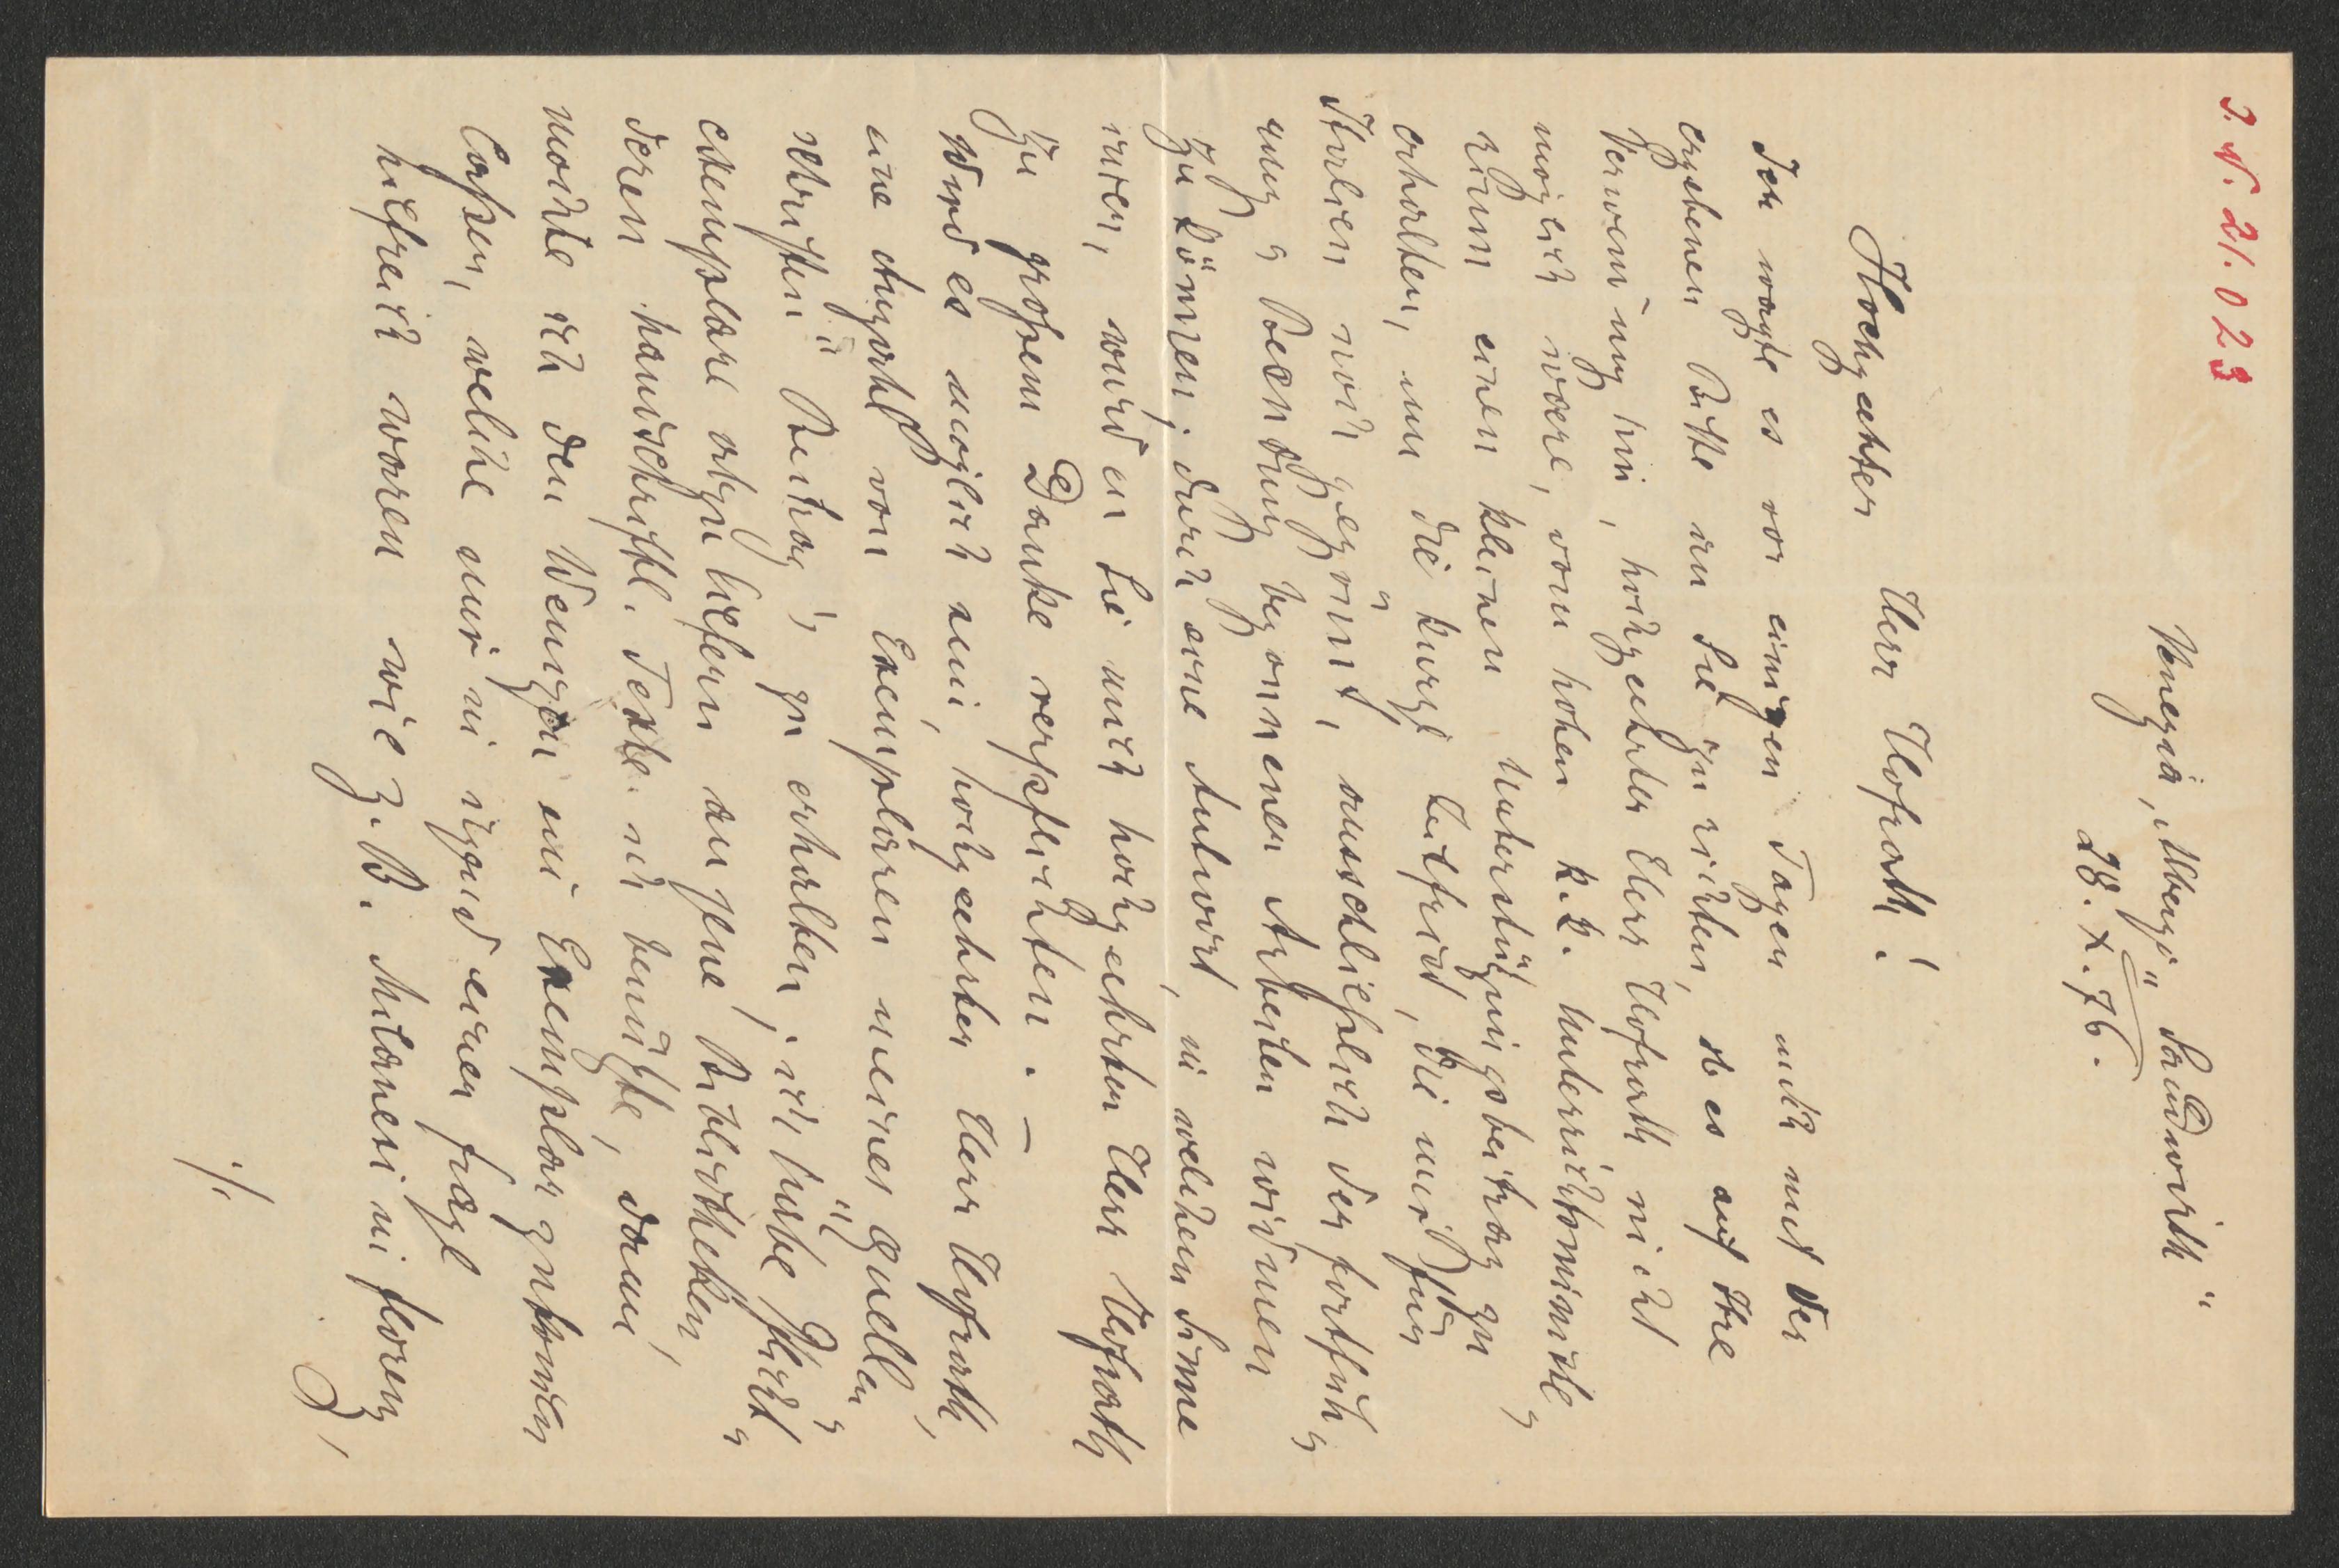 J. N. 21.023
Venezia, „Albergo Sandwirth“
28. X. 76.
Hochgeehrter Herr Hofrath!
Ich wagte es vor einigen Tagen mich mit der
ergebenen Bitte an Sie zu richten, ob es auf Ihre
Verwendung hin, hochgeehrter Herr Hofrath nicht
möglich wäre, vom hohen k.k. Unterrichtsministe-
rium einen kleinen Unterstützungsbeitrag zu
erhalten, um die kurze Zeitfrist, die mir für
Italien noch gegönnt, ausschließlich der Fortfüh-
rung & Beendung begonnener Arbeiten widmen
zu können; durch eine Antwort, in welchem Sinne
immer, würden Sie mich hochgeehrter Herr Hofrath
zu großem Danke verpflichten. –
Wird es möglich sein, hochgeehrter Herr Hofrath,
eine Anzahl von Exemplaren meines „Quellen-
schriften“ Beitrag's zu erhalten; ich habe Pflicht-
exemplare abzuliefern an jene Bibliotheken,
deren handschriftl. Texte ich benützte, dann
möchte ich den Wenigen ein Exemplar zukommen
lassen, welche mir in irgend einer Frage
hilfreich waren wie z. B. Milanesi in Florenz,
./.